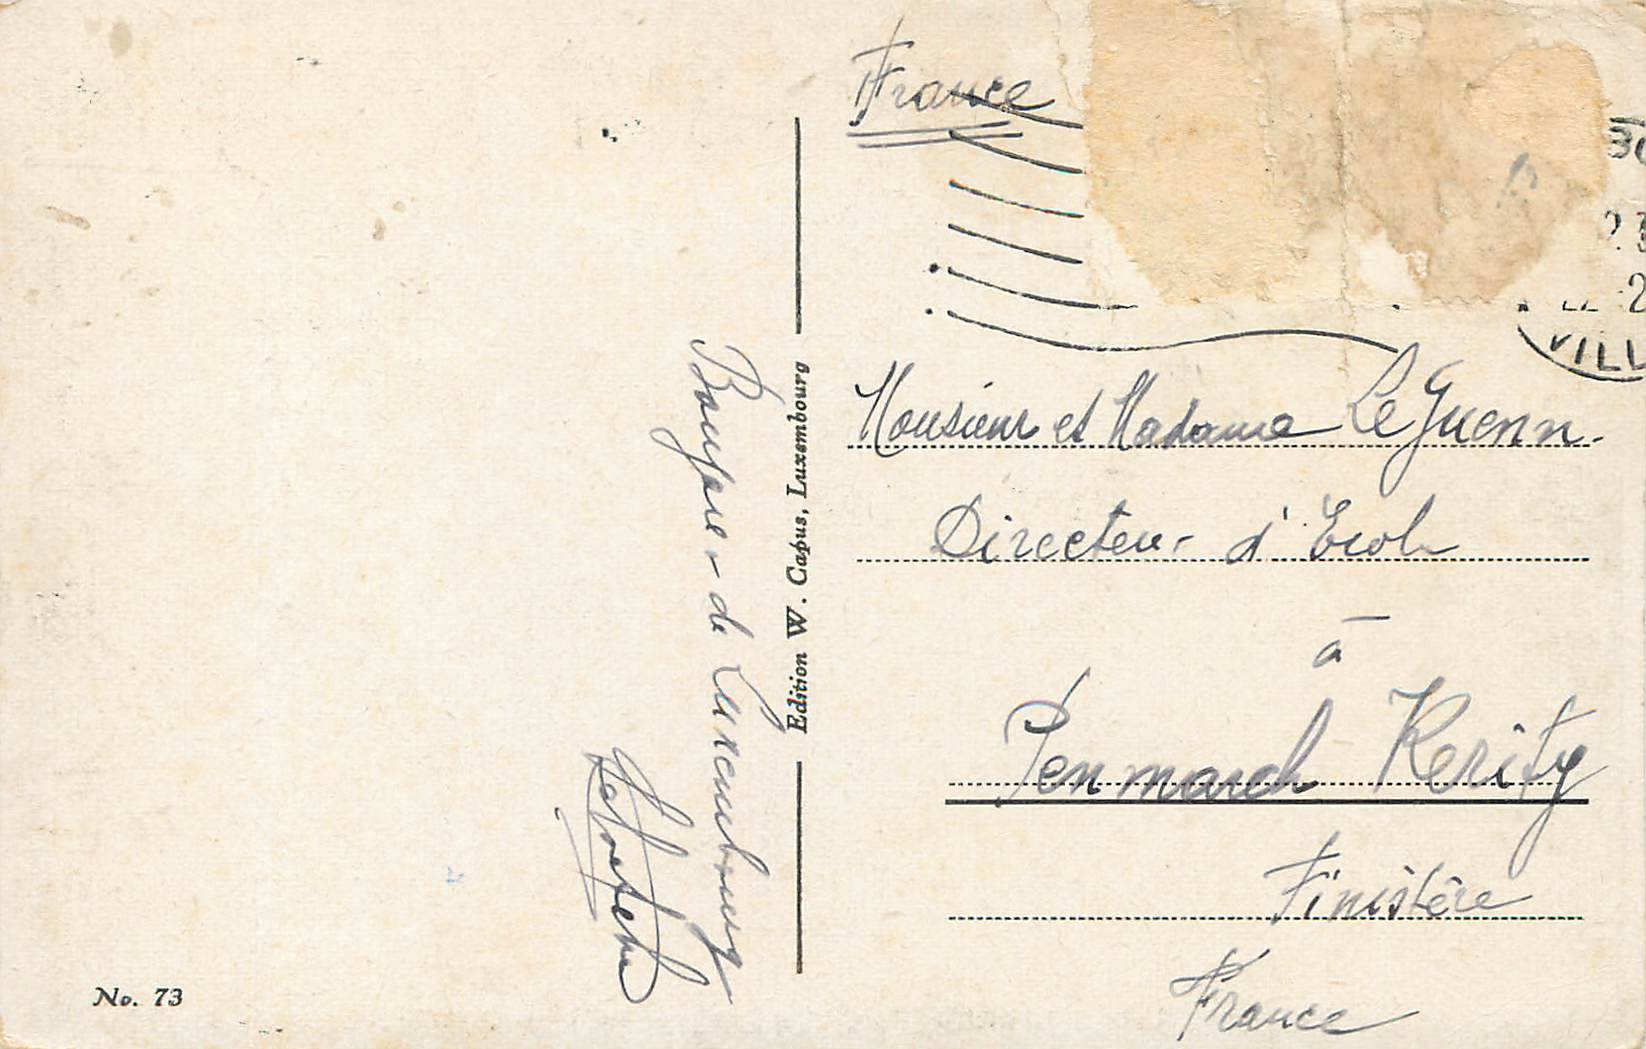 France
VILL
Monsieur et Madame Le Guenn.
Directeur d'Ecole
à
Penmarch Kerity
Finistère
France
Bonjour de Luxembourg
Edition W. Capus, Luxembourg
No. 73